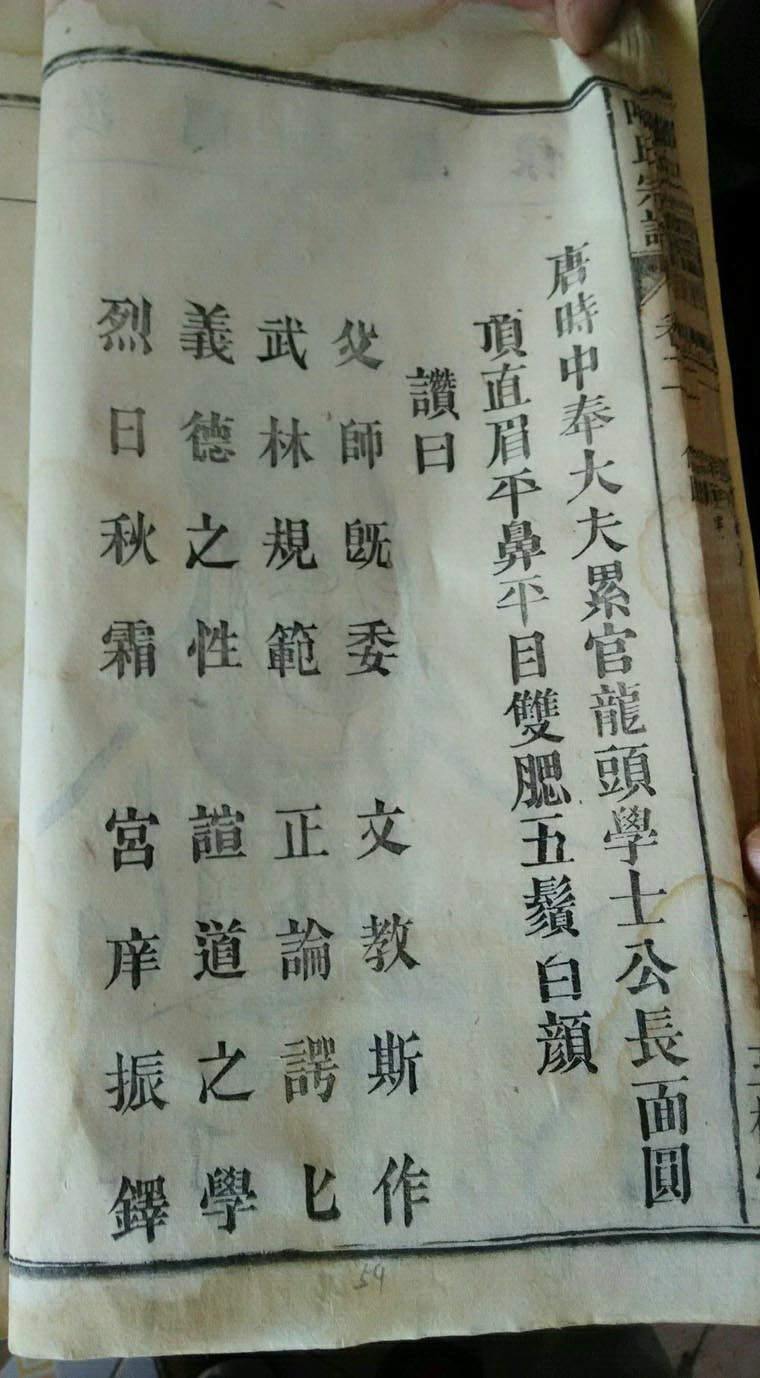 氏宗譜
卷二
唐時中奉大夫累官龍頭學士公長面圓
頂直眉平鼻平目雙腮五鬚白顔
讚曰
父師旣委 文教斯作
武林規範 正論諤匕
義德之性 諠道之學
烈日秋霜 宮庠振鐸
59